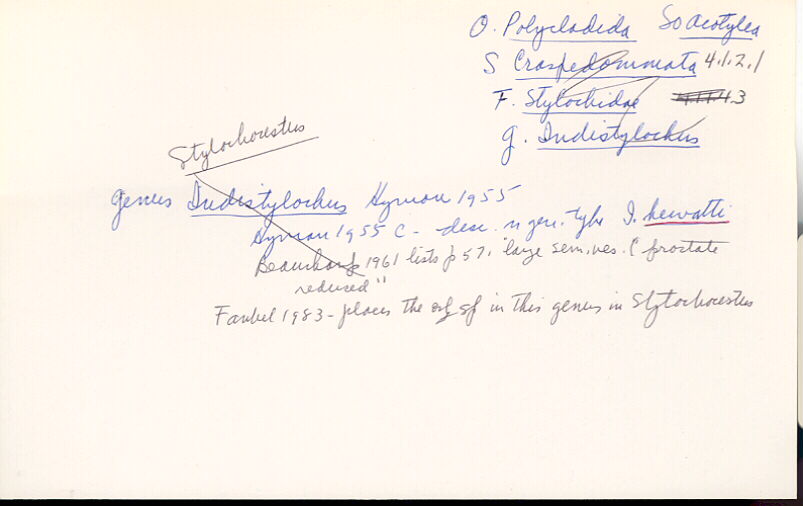 O. Polycladida So Acotylea
S Craspedommata 4.1.2.1
F. Stylochidae 4.3
g. Indistylochus
Stylochocestus
genus Indistylochus Hyman 1955
Hyman 1955 C - desc. n gen. type I. hewatti
Beauchamp 1961 lists p 57, "large sem. ves. C̄ prostate
reduced"
Faubel 1983 - places the only sp in this genus in Stylochocestus